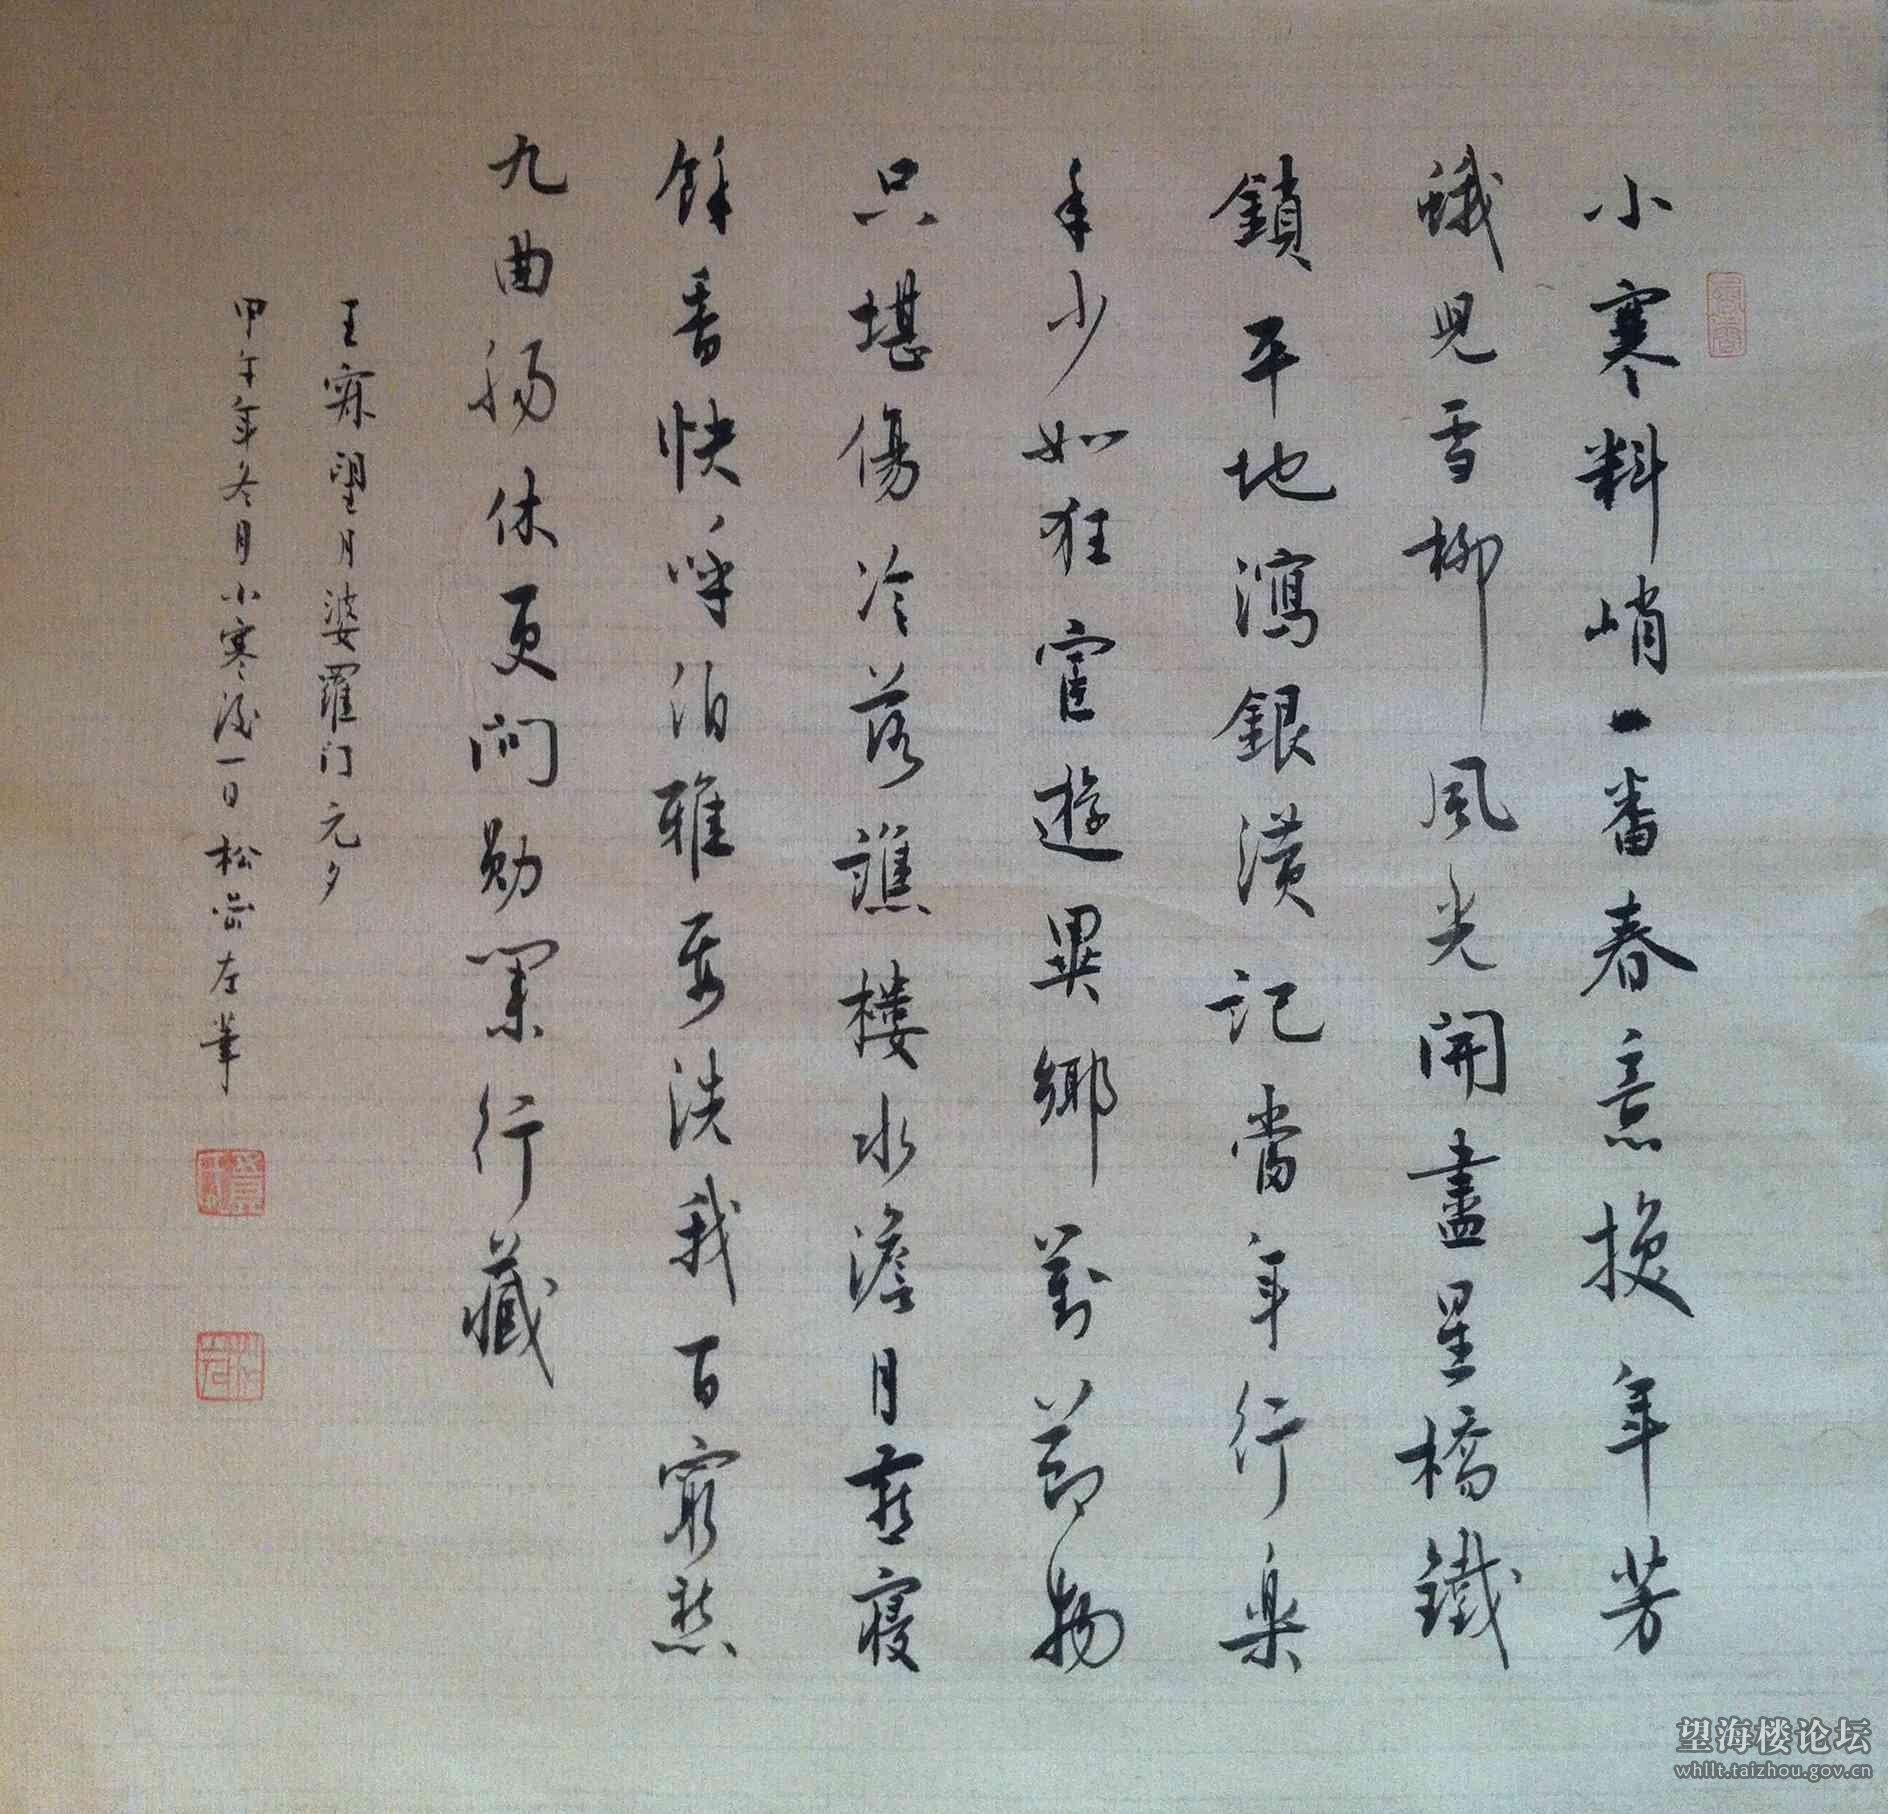 小寒料峭一番春意換年芳
蛾兒雪柳風光開盡星橋鐵
鎖平地瀉銀潢記當年行樂
年少如狂宦遊異鄉對節物
只堪傷冷落譙樓水澹月燕寢
餘香快呼伯雅要洗我百窮愁
九曲腸休更問勛業行藏
王寀望月婆羅门元夕
甲午年冬月小寒後一日松岩左筆
望海楼论坛
whllt.taizhou.gov.cn